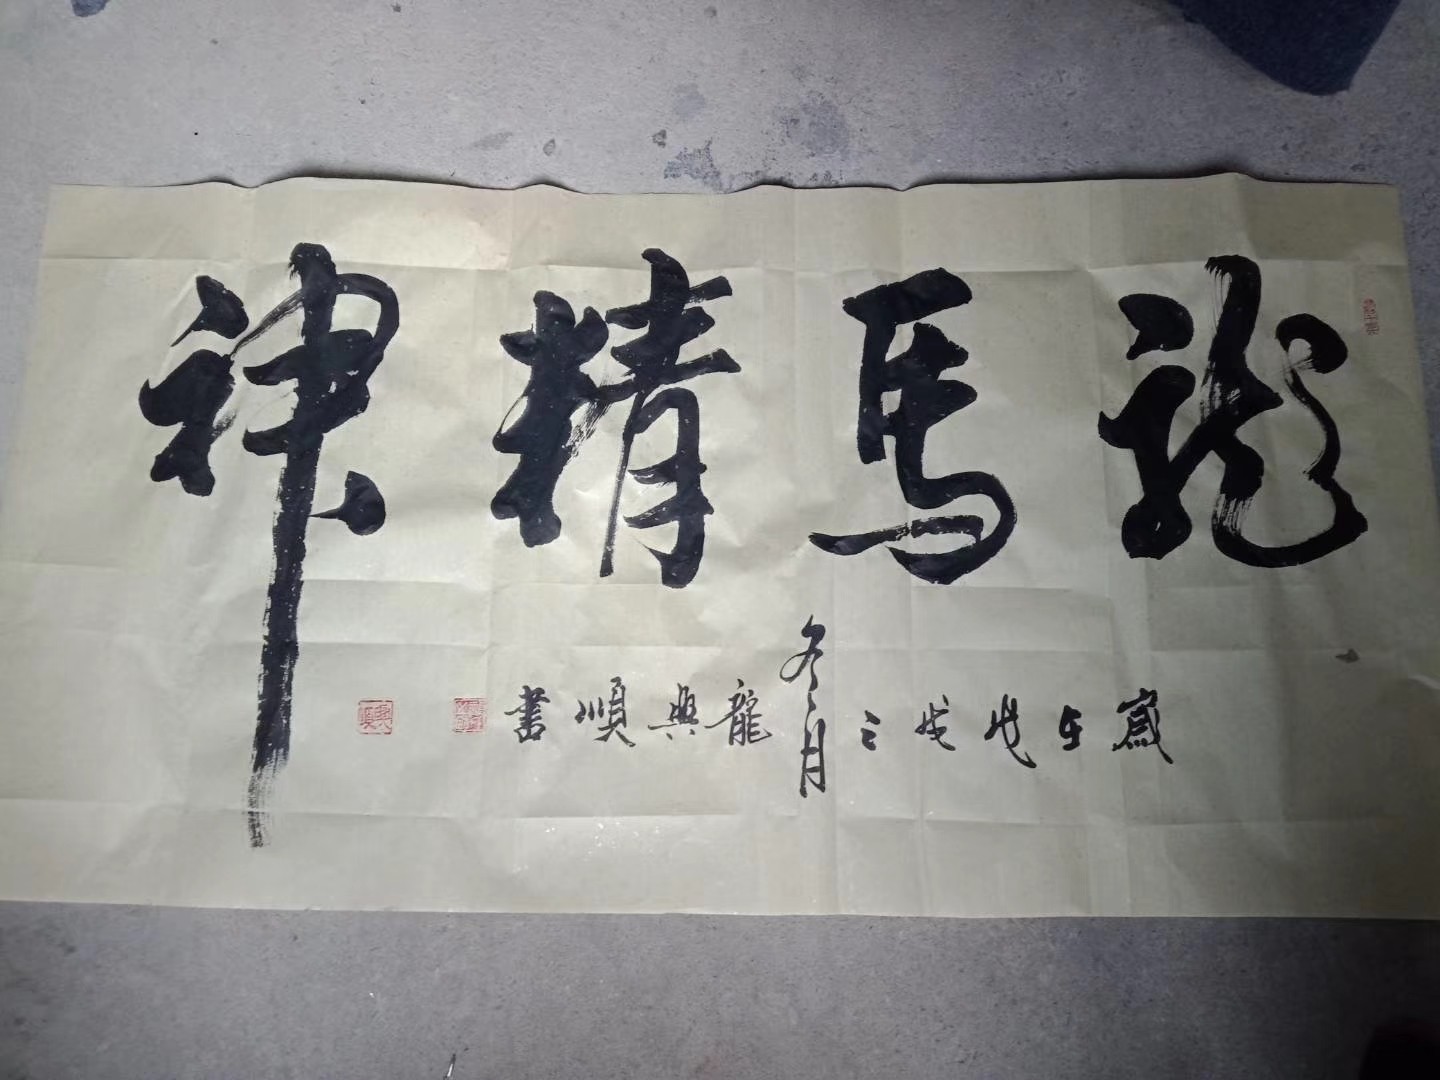 龍馬精神
歲在戊戌之冬月龍興順書